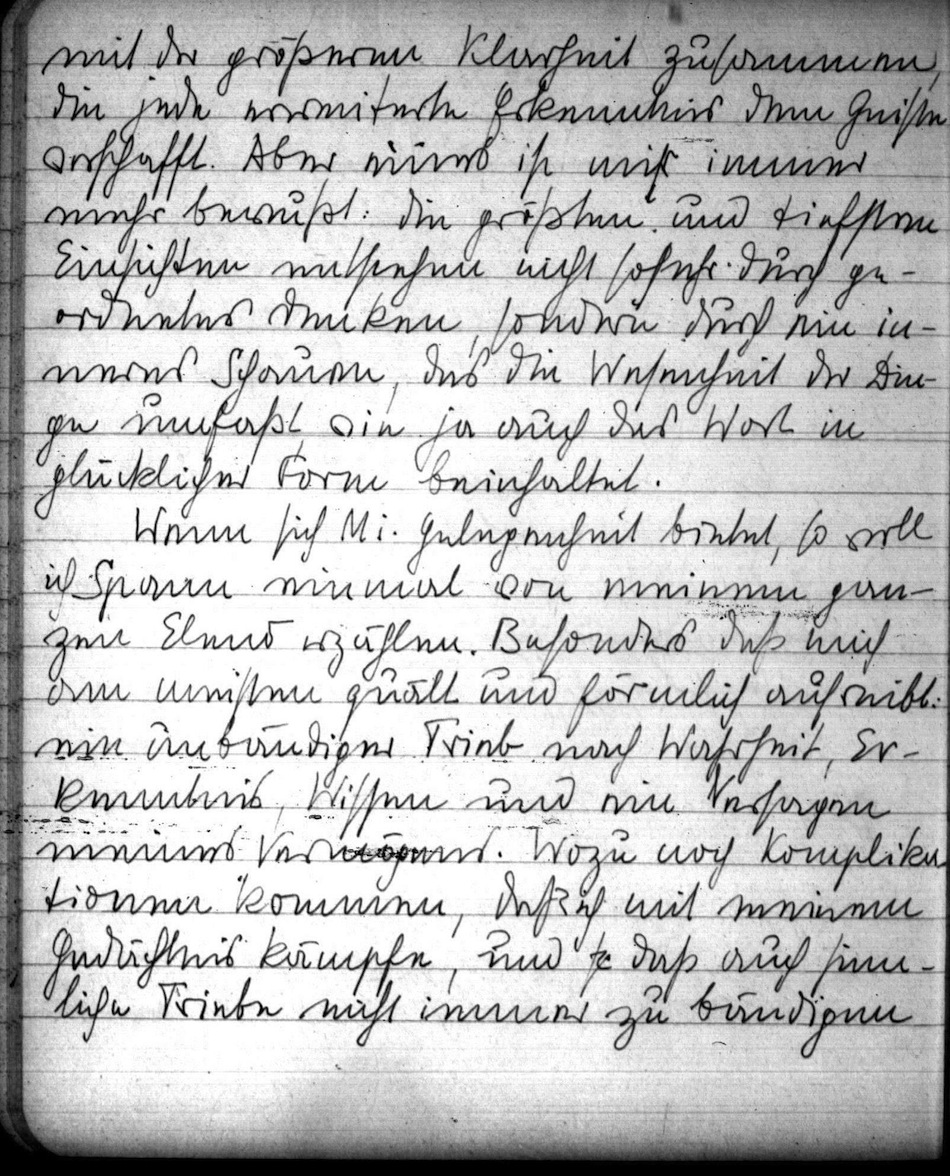 mit der größeren Klarheit zusammen,
die jede erweiterte Erkenntnis dem Geiste
verschafft. Aber eines ist mir immer
mehr bewußt: die größten und tiefsten
Einsichten entstehen nicht sosehr durch ge-
ordnetes Denken, sondern durch ein in-
neres Schauen, das die Wesenheit der Din-
ge umfaßt, wie ja auch das Wort in
glücklicher Form beinhaltet.
Wenn sich Mi. Gelegenheit bietet, so will
ich Spann einmal von meinem gan-
zen Elend erzählen. Besonders daß mich
am meisten quält und förmlich aufreibt:
ein unbändiger Trieb nach Wahrheit, Er-
kenntnis, Wissen und ein Versagen
meines Vermögens. Wozu noch Komplika-
tionen kommen, daß ich mit meinem
Gedächtnis kämpfe, und daß auch sinn-
liche Triebe nicht immer zu bändigen